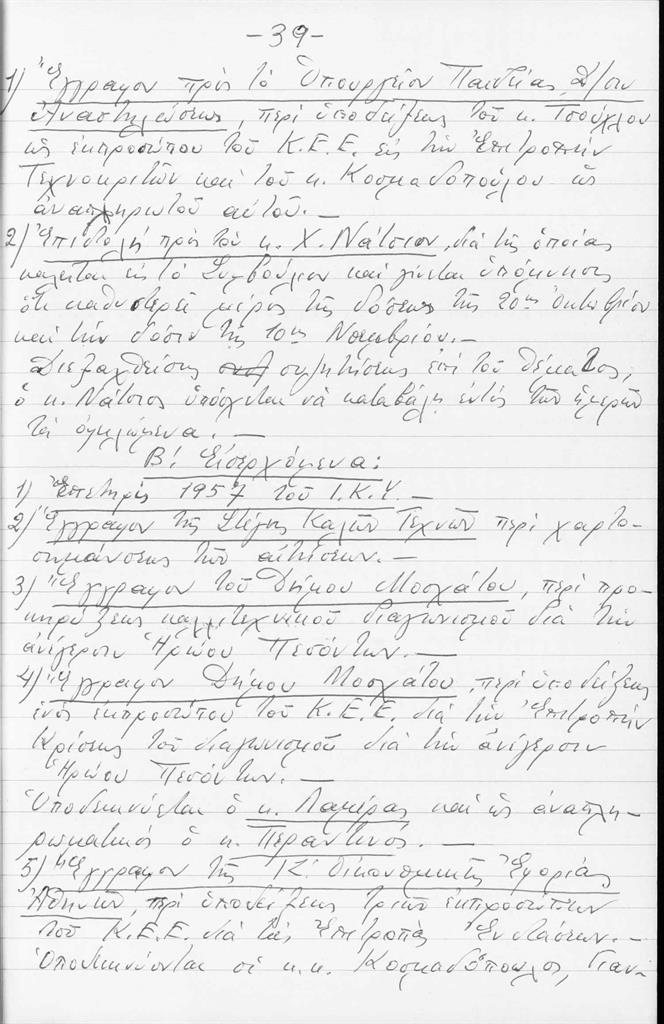 -39-
1) Ἔγγραφον πρός τό Ὑπουργεῖον Παιδείας, Δ/σιν
Ἀναστηλώσεως, περί ὑποδείξεως τοῦ κ. Τσούχλου
ὡς ἐκπροσώπου τοῦ Κ.Ε.Ε. εἰς τήν Ἐπιτροπήν
Τεχνοκριτῶν καί τοῦ κ. Κοσμαδοπούλου ὡς
ἀναπληρωτοῦ αὐτοῦ.—
2) Ἐπιστολή πρός τόν κ. Χ. Νάτσιον, διά τῆς ὁποίας
καλεῖται εἰς τό Συμβούλιον καί γίνεται ὑπόμνησις
ὅτι καθυστερεῖ μέρος τῆς δόσεως τῆς 20ης Ὀκτωβρίου
καί τήν δόσιν τῆς 10ης Νοεμβρίου.—
Διεξαχθείσης συζητήσεως ἐπί τοῦ θέματος,
ὁ κ. Νάτσιος ὑπόσχεται νά καταβάλῃ ἐντός τῶν ἡμερῶν
τά ὀφειλόμενα.—
Β! Εἰσερχόμενα:
1) Ἐπετηρίς 1957 τοῦ Ι.Κ.Υ.—
2) Ἔγγραφον τῆς Στέγης Καλῶν Τεχνῶν περί χαρτο-
σημάνσεως τῶν αἰτήσεων.—
3) Ἔγγραφον τοῦ Δήμου Μοσχάτου, περί προ-
κηρύξεως καλλιτεχνικοῦ διαγωνισμοῦ διά τήν
ἀνέγερσιν Ἡρώου Πεσόντων.—
4) Ἔγγραφον Δήμου Μοσχάτου, περί ὑποδείξεως
ἑνός ἐκπροσώπου τοῦ Κ.Ε.Ε. διά τήν Ἐπιτροπήν
Κρίσεως τοῦ διαγωνισμοῦ διά τήν ἀνέγερσιν
Ἡρώου Πεσόντων.—
Ὑποδεικνύεται ὁ κ. Λαμέρας καί ὡς ἀναπλη-
ρωματικός ὁ κ. Περαντινός.—
5) Ἔγγραφον τῆς ΙΖ' Οἰκονομικῆς Ἐφορίας
Ἀθηνῶν, περί ὑποδείξεως τριῶν ἐκπροσώπων
τοῦ Κ.Ε.Ε. διά τάς Ἐπιτροπάς Ἐνστάσεων.—
Ὑποδεικνύονται οἱ κ.κ. Κοσμαδόπουλος, Γιαν-